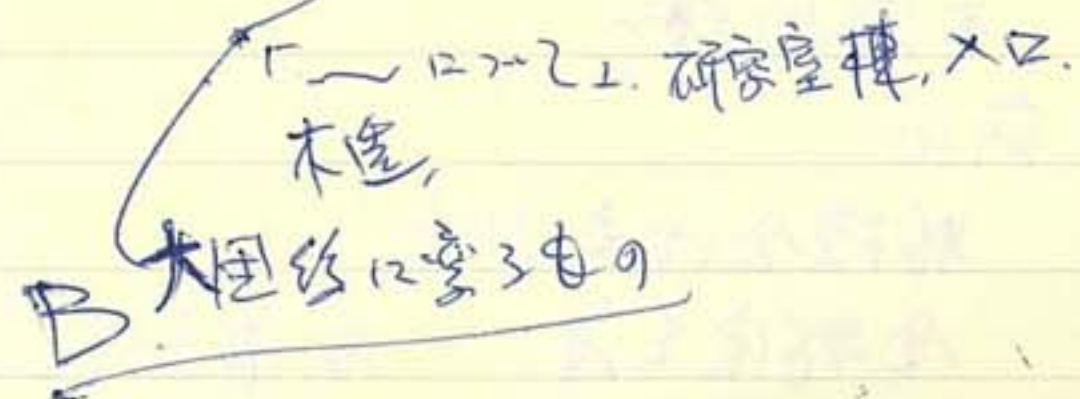 「〜について」. 研究室棟, 入口.
木造,
B 大国 に変るもの